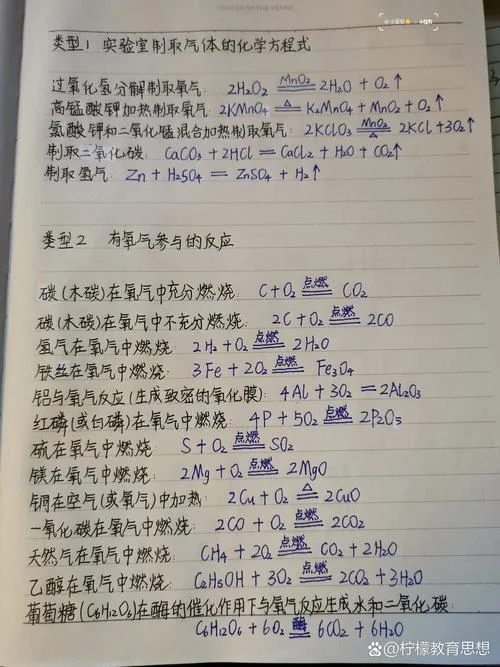 TRACES OF THE YEARS
类型1 实验室制取气体的化学方程式
过氧化氢分解制取氧气: 2H₂O₂ =MnO₂= 2H₂O + O₂↑
高锰酸钾加热制取氧气: 2KMnO₄ =△= K₂MnO₄ + MnO₂ + O₂↑
氯酸钾和二氧化锰混合加热制取氧气: 2KClO₃ =MnO₂/△= 2KCl + 3O₂↑
制取二氧化碳: CaCO₃ + 2HCl = CaCl₂ + H₂O + CO₂↑
制取氢气: Zn + H₂SO₄ = ZnSO₄ + H₂↑
类型2 有氧气参与的反应
碳(木碳)在氧气中充分燃烧: C + O₂ =点燃= CO₂
碳(木碳)在氧气中不充分燃烧: 2C + O₂ =点燃= 2CO
氢气在氧气中燃烧: 2H₂ + O₂ =点燃= 2H₂O
铁丝在氧气中燃烧: 3Fe + 2O₂ =点燃= Fe₃O₄
铝与氧气反应(生成致密的氧化膜): 4Al + 3O₂ = 2Al₂O₃
红磷(或白磷)在氧气中燃烧: 4P + 5O₂ =点燃= 2P₂O₅
硫在氧气中燃烧: S + O₂ =点燃= SO₂
镁在氧气中燃烧: 2Mg + O₂ =点燃= 2MgO
铜在空气(或氧气)中加热: 2Cu + O₂ =△= 2CuO
一氧化碳在氧气中燃烧: 2CO + O₂ =点燃= 2CO₂
天然气在氧气中燃烧: CH₄ + 2O₂ =点燃= CO₂ + 2H₂O
乙醇在氧气中燃烧: C₂H₅OH + 3O₂ =点燃= 2CO₂ + 3H₂O
葡萄糖(C₆H₁₂O₆)在酶的催化作用下与氧气反应生成水和二氧化碳:
C₆H₁₂O₆ + 6O₂ =酶= 6CO₂ + 6H₂O
柠檬教育思想